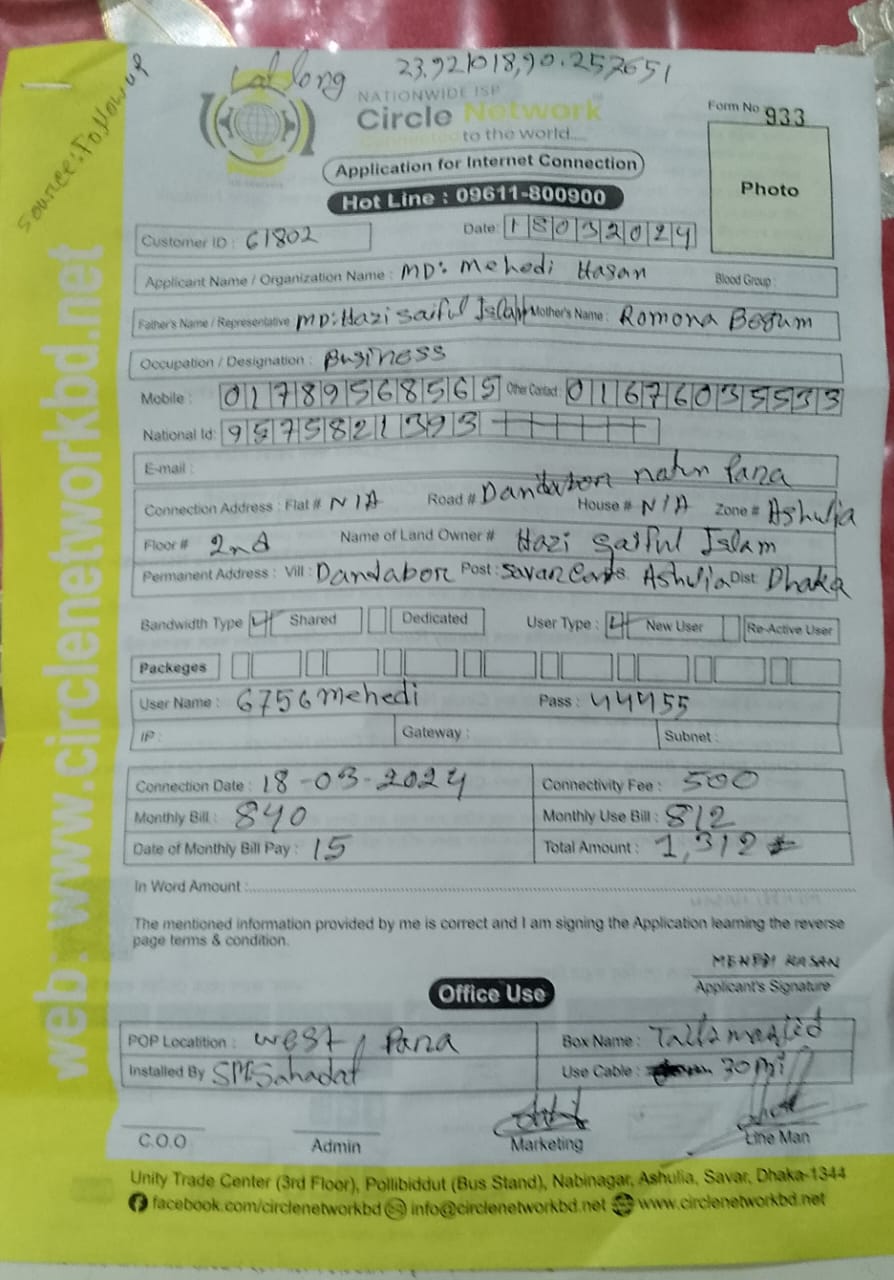 Source: Followup
Lat long 23.921018,90.257651
NATIONWIDE ISP
Circle Network
Connected to the world....
Form No 933
Application for Internet Connection
Photo
Hot Line : 09611-800900
Customer ID : 61802 Date: 18032024
Applicant Name / Organization Name : MD: Mehedi Hasan Blood Group :
Father's Name / Representative MD: Hazi Saiful Islam Mother's Name : Romona Begum
Occupation / Designation : Business
Mobile : 01789568565 Other Contact 01676035533
National Id: 9575821393
E-mail :
Connection Address : Flat # N/A Road # Dandabon natun Para House # N/A Zone # Ashulia
Floor # 2nd Name of Land Owner # Hazi Saiful Islam
Permanent Address : Vill : Dandabon Post : Savar Cant. Ashulia Dist: Dhaka
Bandwidth Type Shared Dedicated User Type : New User Re-Active User
Packeges
User Name : 6756mehedi Pass : 44455
IP : Gateway : Subnet :
Connection Date : 18-03-2024 Connectivity Fee : 500
Monthly Bill : 840 Monthly Use Bill : 812
Date of Monthly Bill Pay : 15 Total Amount : 1,312
In Word Amount :
The mentioned information provided by me is correct and I am signing the Application learning the reverse
page terms & condition.
MEHEDI HASAN
Applicant's Signature
Office Use
POP Locatition : West Para Box Name : Talla masjid
Installed By SM Sahadat Use Cable : 30 Mi
C.O.O Admin Marketing Line Man
Unity Trade Center (3rd Floor), Pollibiddut (Bus Stand), Nabinagar, Ashulia, Savar, Dhaka-1344
facebook.com/circlenetworkbd info@circlenetworkbd.net www.circlenetworkbd.net
web: www.circlenetworkbd.net